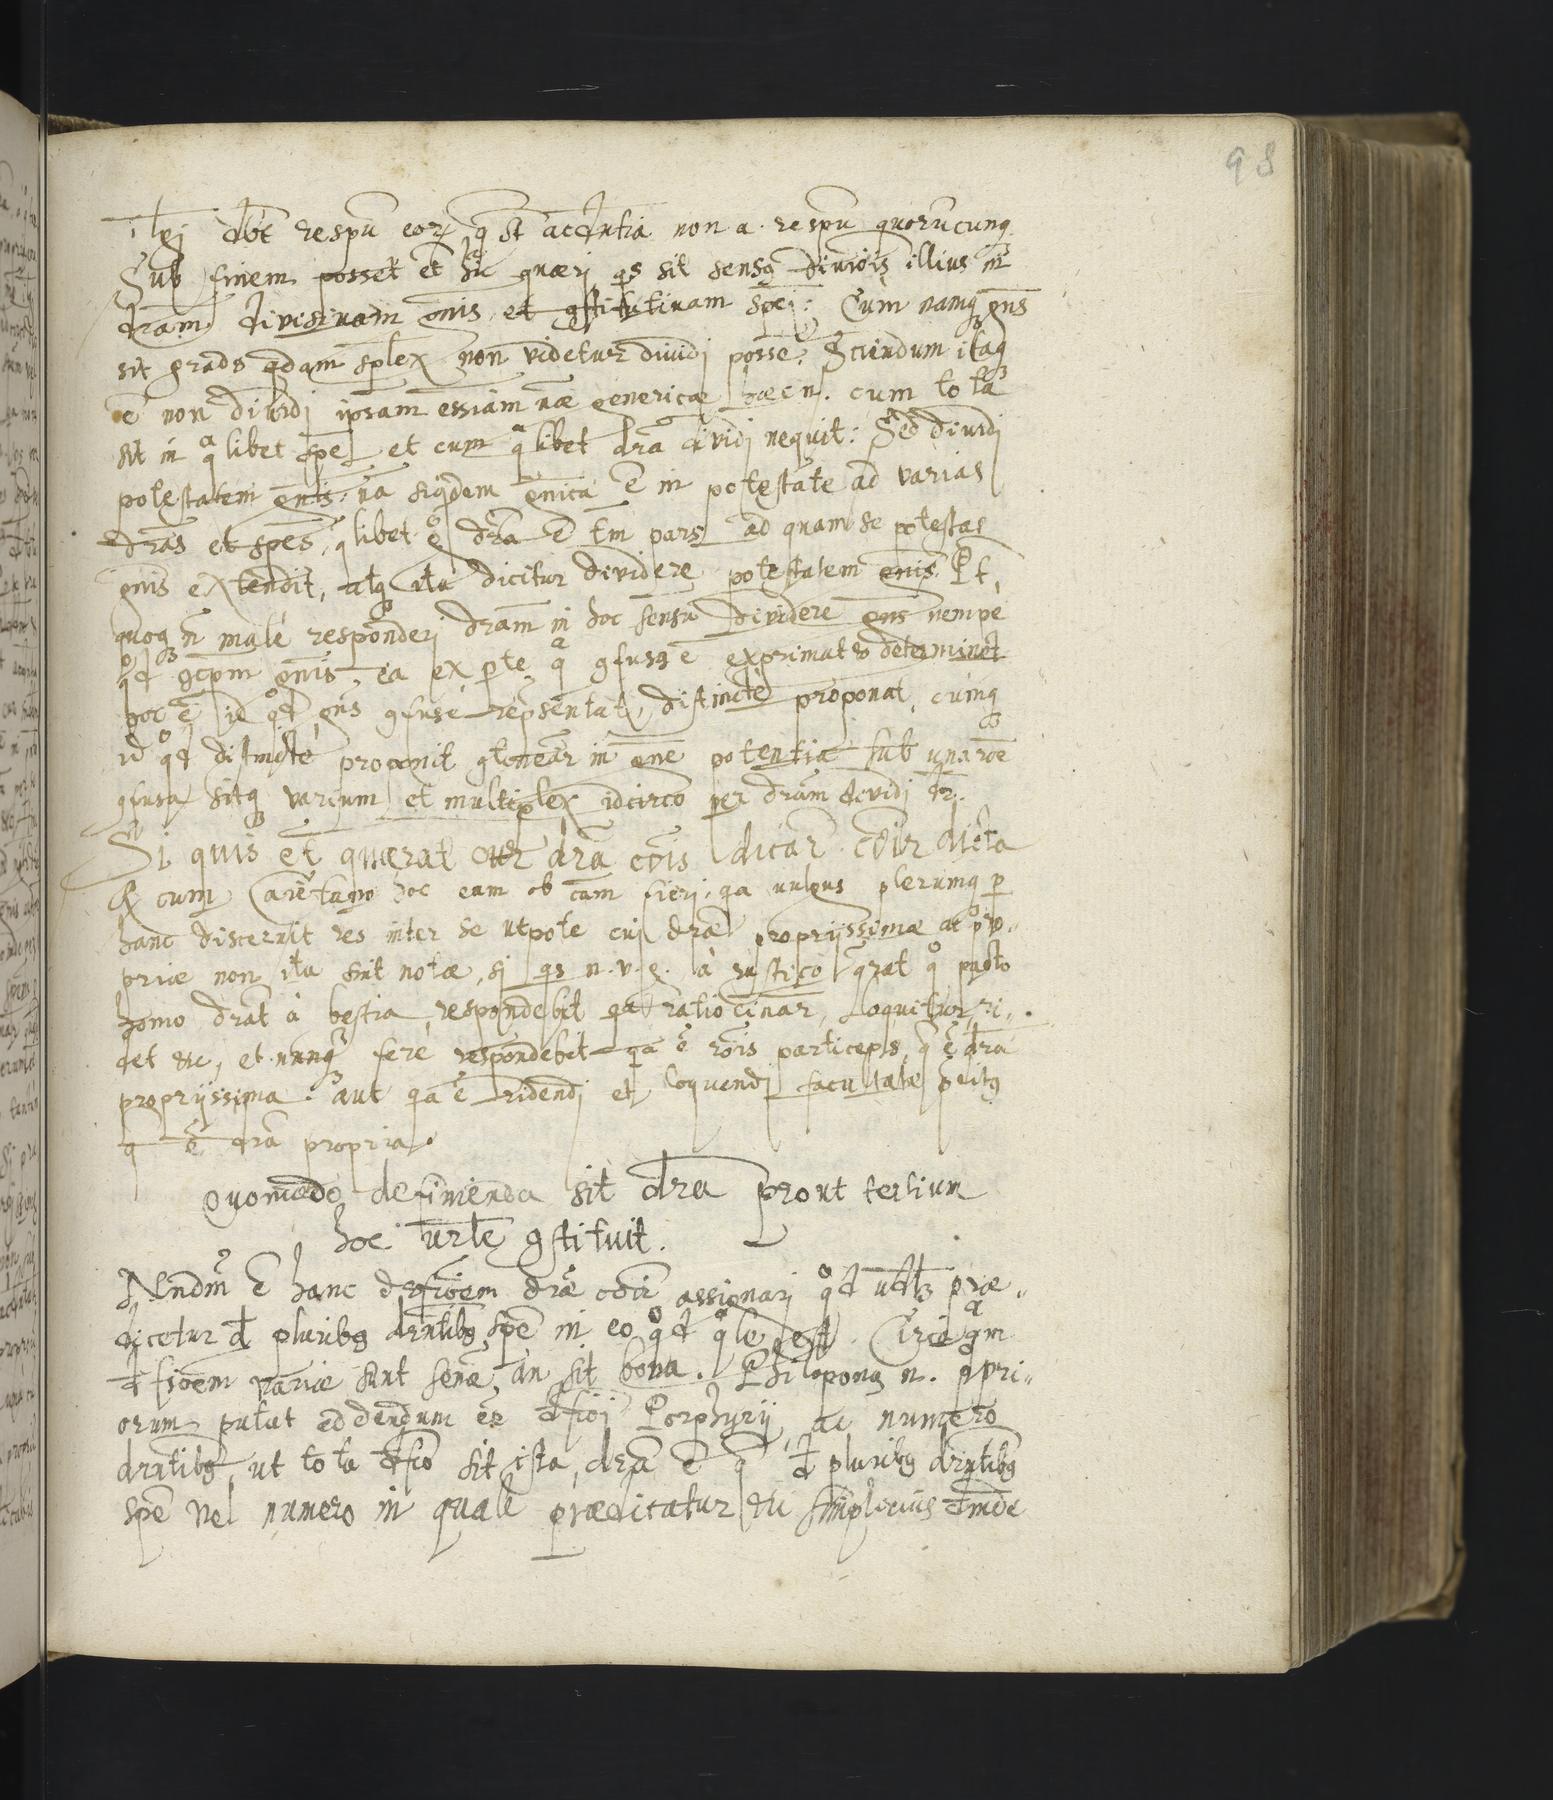 98
dbt respũ eorʒ q̃ st accd̃ntia non a. respũ quorũcunq
Sub finem posset et̃ hic quærj qs sit sensq divĩois illius in
dram divisivam gnis, et gstitutivam spej: Cùm namq gns
sit grads qdam splex non videtur dividj posse. Sciendum itaq
ẽ non dividj ipsam essiam næ genericæ hæc n. cum tota
sit in qlibet spe et cum qlibet dra dividj nequit: Sed dividj
potestatem gnis: na siqdem gnica ẽ in potestate ad varias
dras et spes, qlibet g dra ẽ tm pars ad quam se potestas
gnis extendit, atq ita dicitur dividere potestatem gnis. Pt,
quoq ñ malè responderj dram in hoc sensu dividere gns nempè
qd gcpm gnis, ea ex pte qa gfusq ẽ exprimat & determinet
hoc ẽ id qd gns gfusè repsentat, distinctè proponat, cumq
id qd distinctè proponit gtineatr in gne potentia sub una roe
gfusa sitq varium et multiplex idcirco per dram dividj dr.
Si quis et̃ quærat cur dra cõis dicatr cõitr dicta
R cum Caietano hoc eam ob cam fieri, qa vulgus plerumq p
hanc discernit res inter se utpote cuj dræ propriissimæ ac pro-
priæ non ita sint notæ, sj qs n. v. g. à rustico qrat qo pacto
homo drat à bestia, respondebit qa ratiocinatr, loquitur, ri-
det &c, et nunq fere respondebit qa ẽ rõis particeps, q̃ ẽ dra
propriissima: aut qa ẽ ridendj et loquendj facultate pditq
q̃ ẽ dra propria.
Quomodo definienda sit dra prout tertium
hoc urle gstituit.
Nndm̃ ẽ hanc dfioem dræ assignari qd præ-
dicetur d pluribq drntibq spe in eo qd qle est. Circa qm
dfioem variæ sunt senæ, an sit bona. Philoponq n.
orum putat addendum ee dfioj Porphyrij, ac numero
drntibq, ut tota dfio sit ista, dra ẽ q̃ d pluribq drntibq
spe vel numero in quale prædicatur simplicius